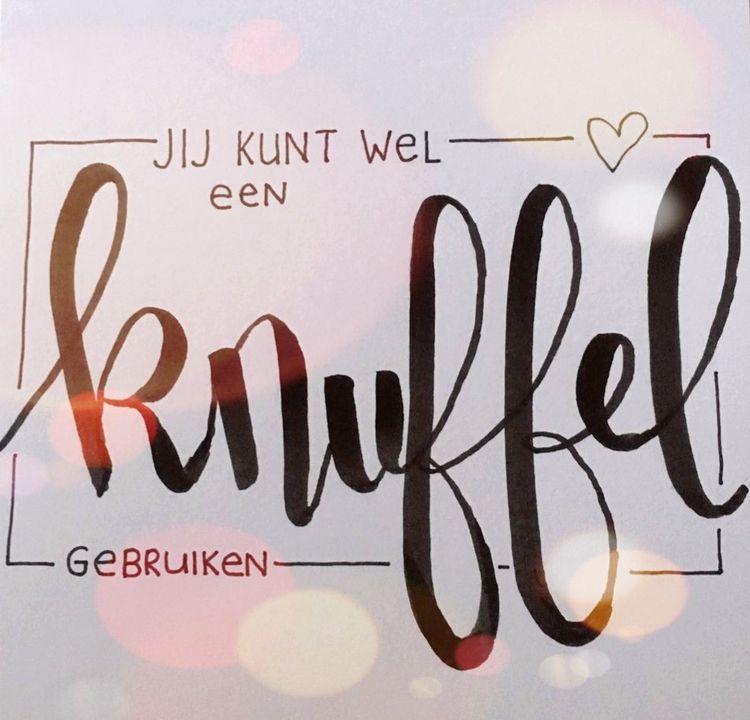 JIJ KUNT WEL
een
knuffel
GEBRUIKEN